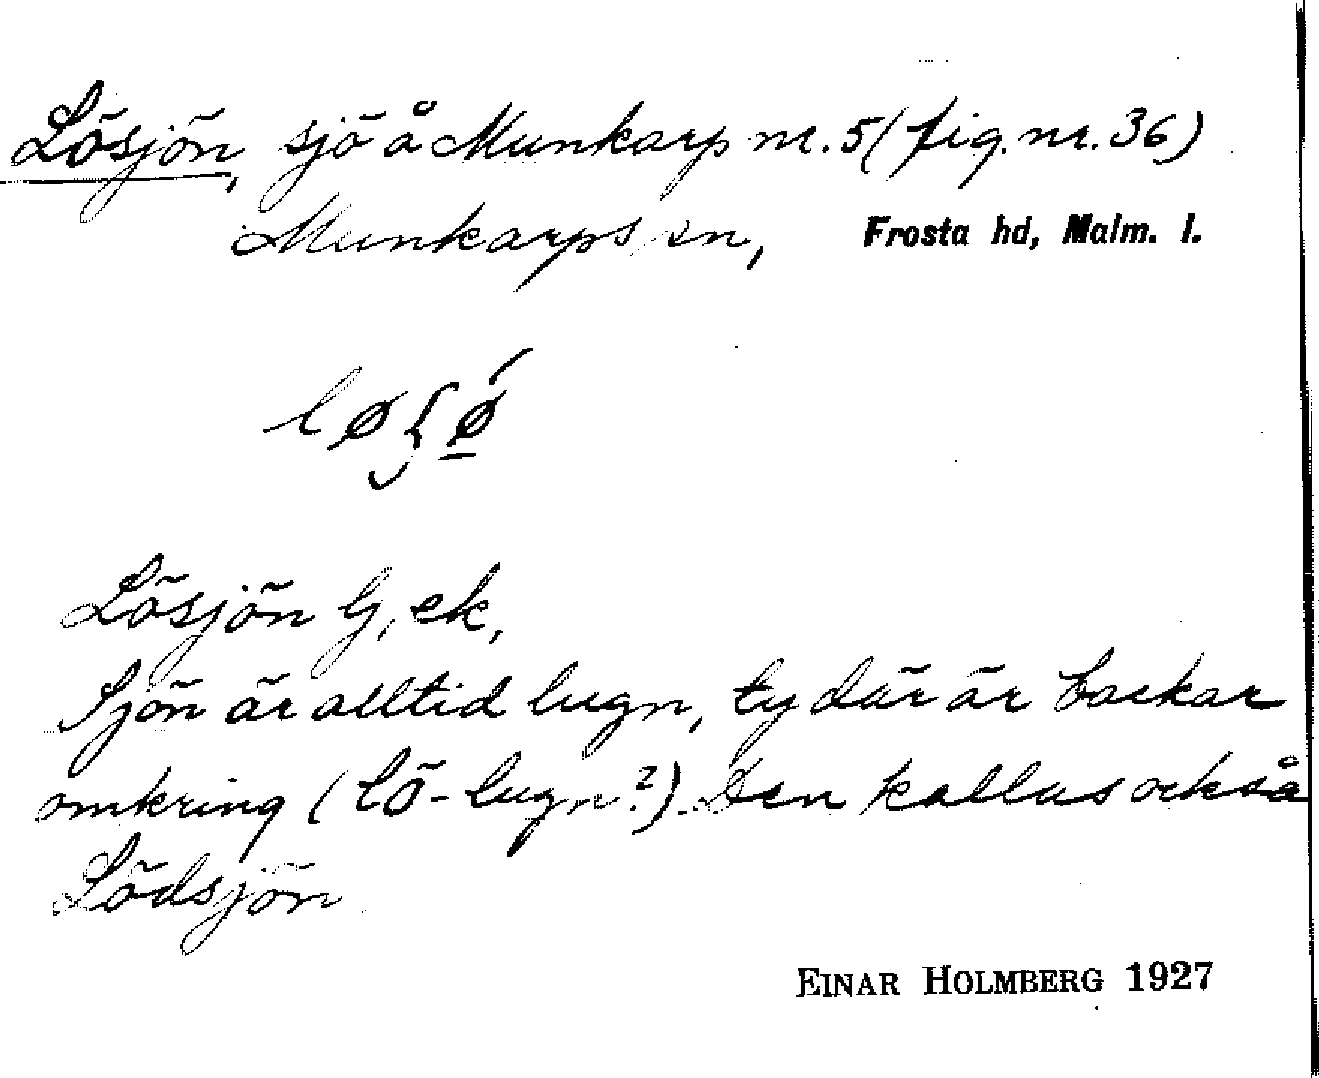 Lösjön, sjö å Munkarp nr. 5 (fig. nr. 36)
Munkarps sn, Frosta hd, Malm. l.
Lösjön G, ek,
Sjön är alltid lugn, ty där är backar
omkring (lö-lugn?). Den kallas också
Lödsjön
EINAR HOLMBERG 1927